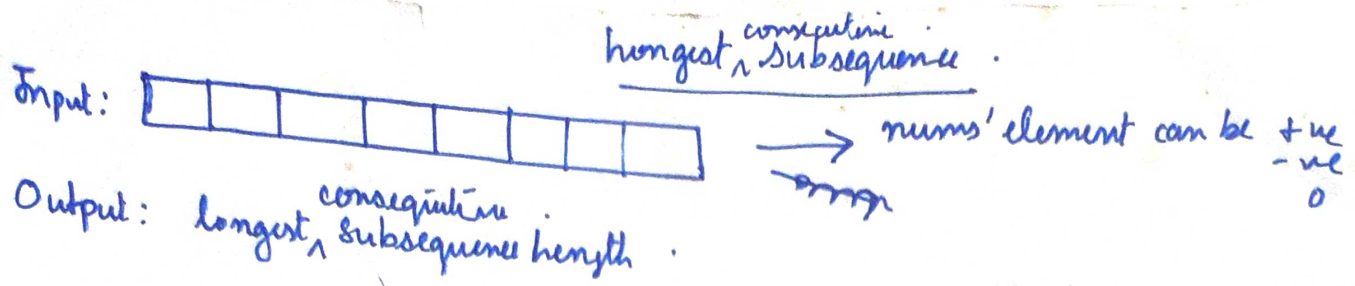 Longest ^ consecutive subsequence .
Input:
→ nums' element can be +ve
-ve
0
Output: longest ^ consequitive subsequence Length .